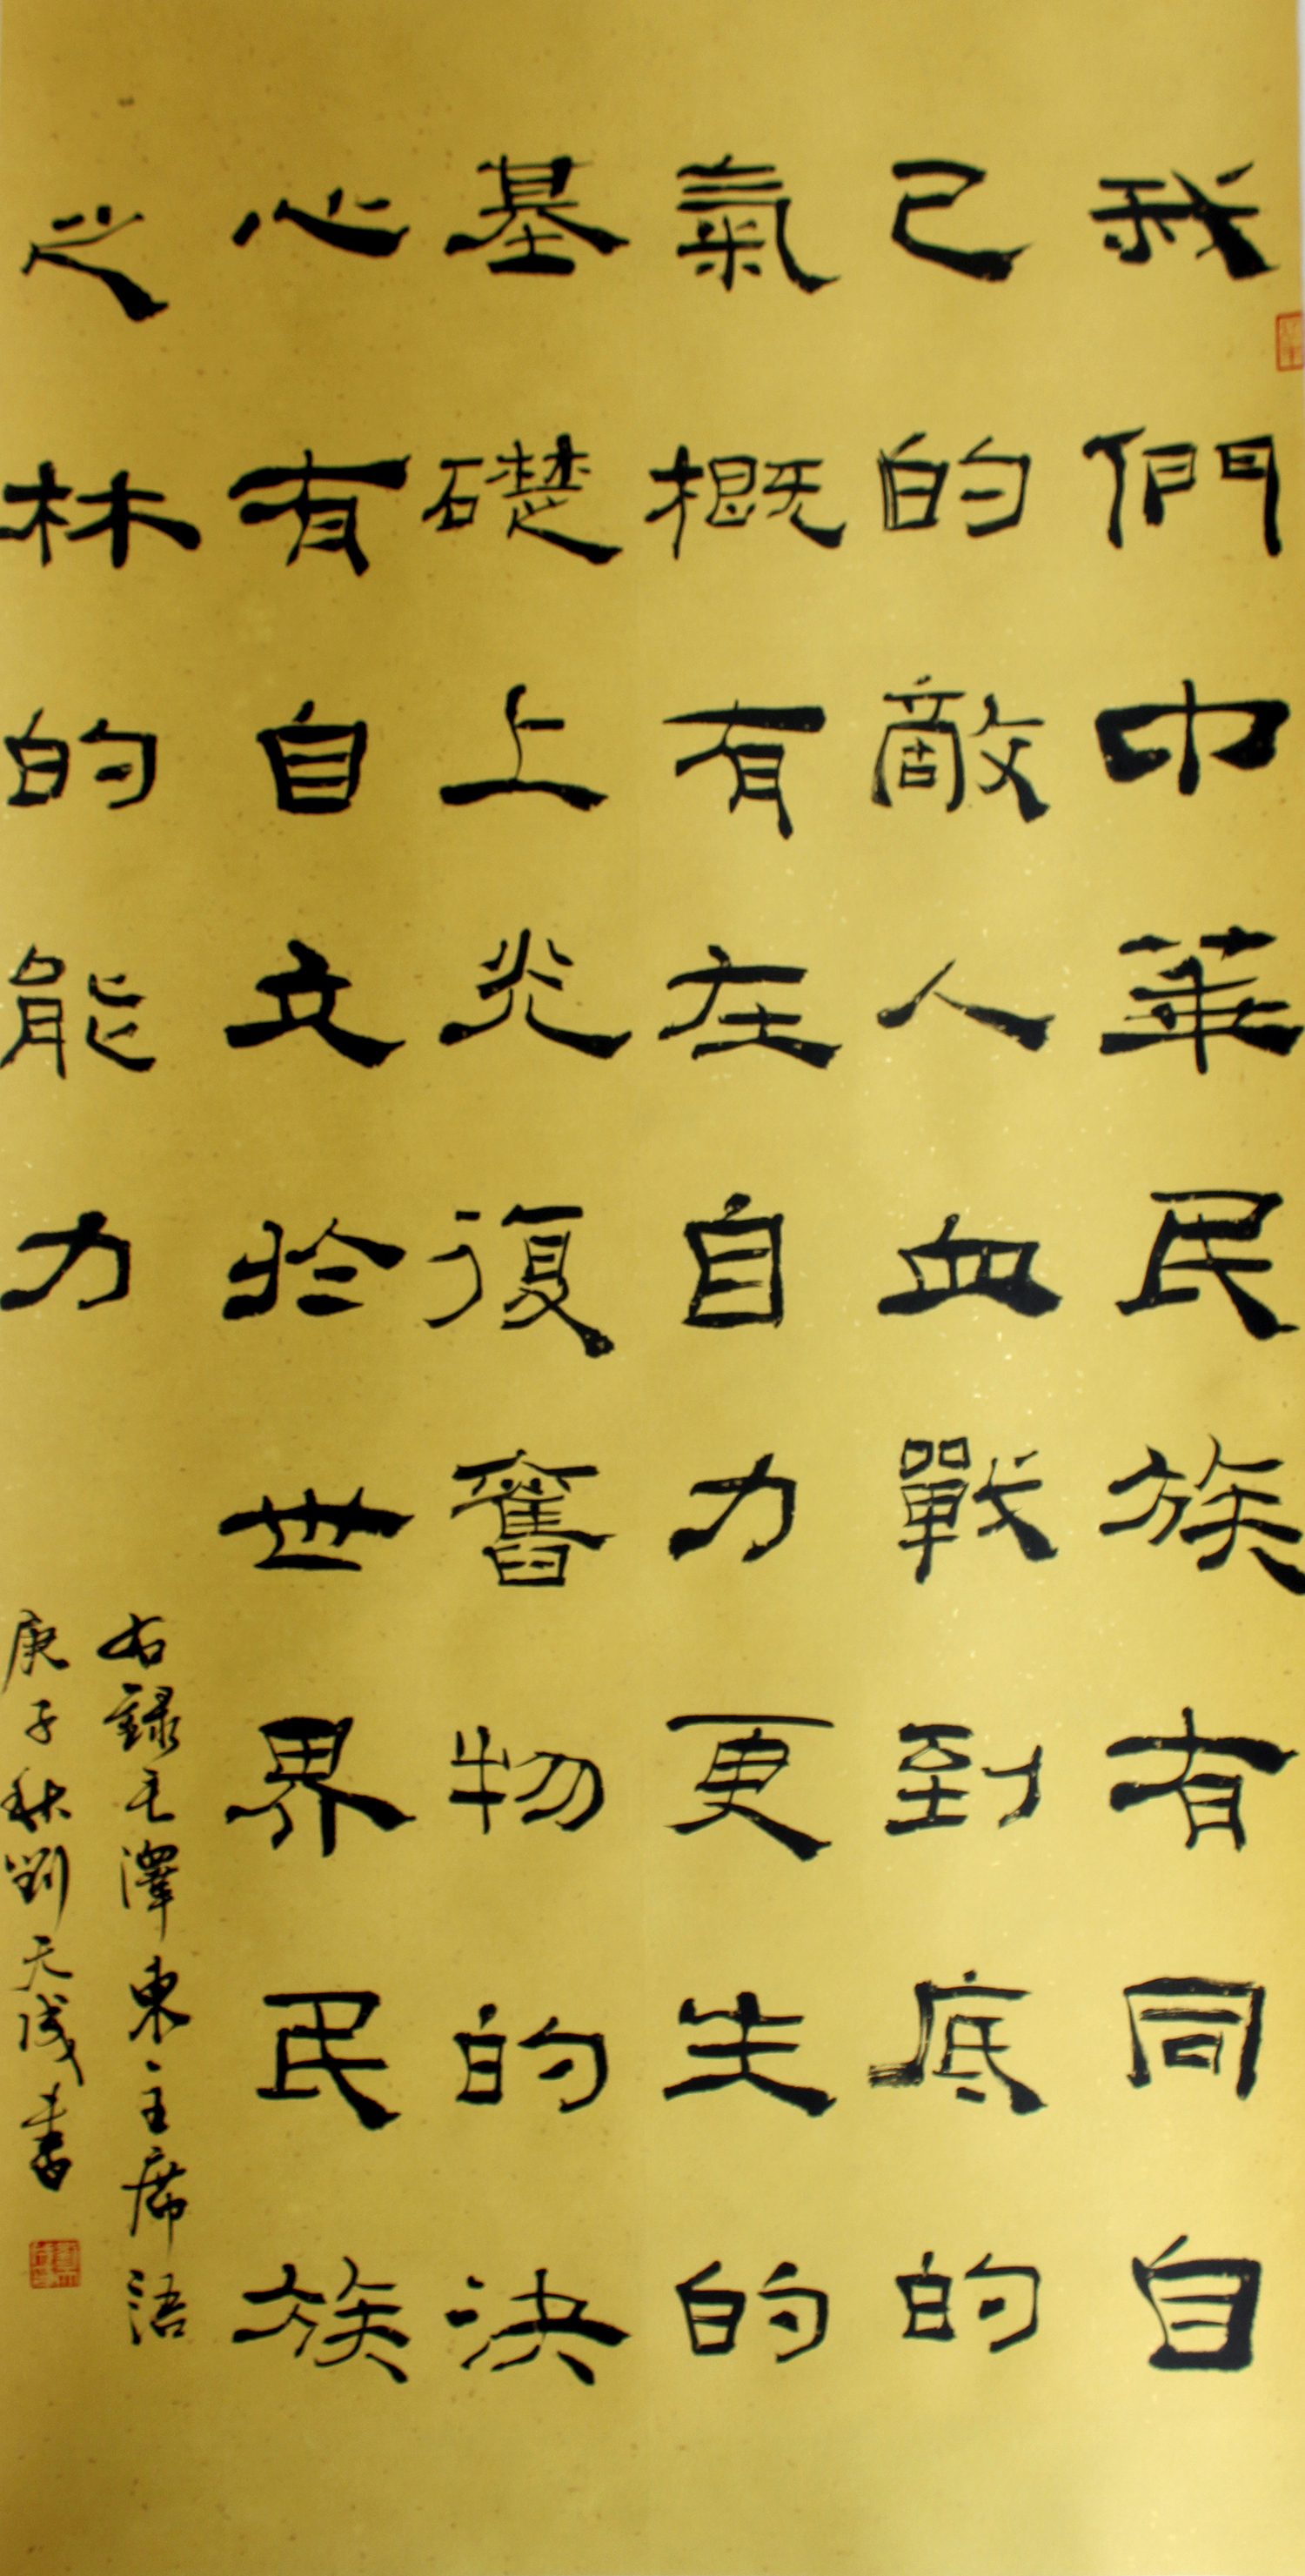 我們中華民族有同自
己的敵人血戰到底的
氣概有在自力更生的
基礎上光復奮物的決
心有自立於世界民族
之林的能力
右錄毛澤東主席語
庚子秋劉元成書